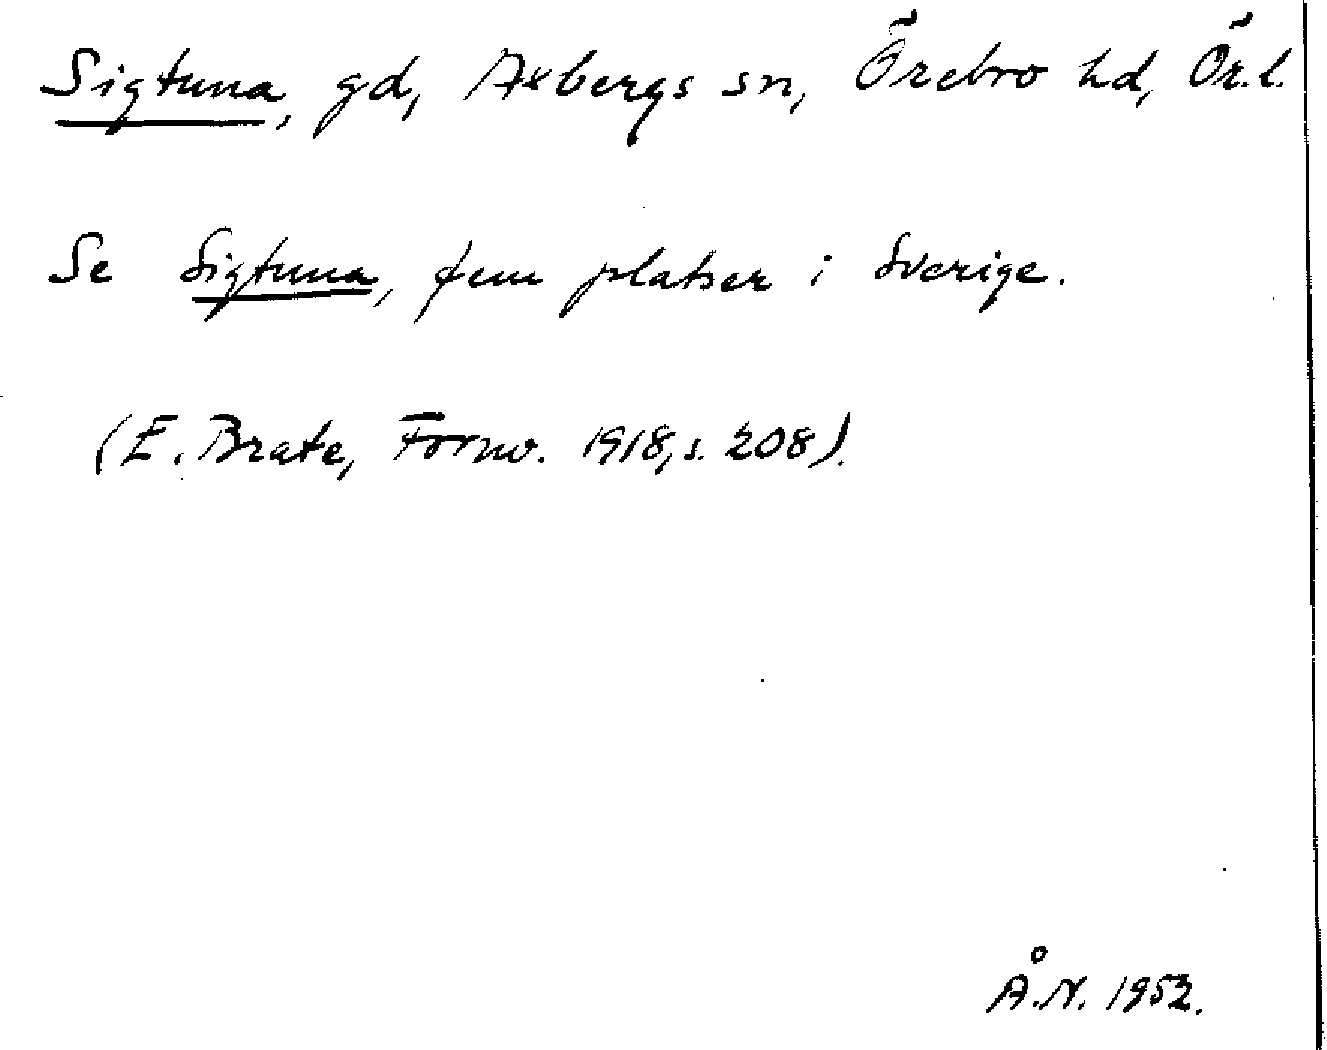 Sigtuna, gd, Axbergs sn, Örebro hd, Ör.l.
Se Sigtuna, fem platser i Sverige.
(E. Brate, Fornv. 1918, s. 208).
Å.N. 1952.